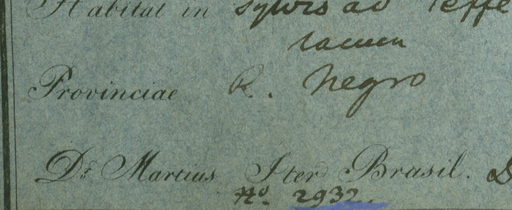 Habitat in sylvis ad Teffé
lacum
Provinciae R. Negro
Dr. Martius Iter Brasil. D
No. 2932.